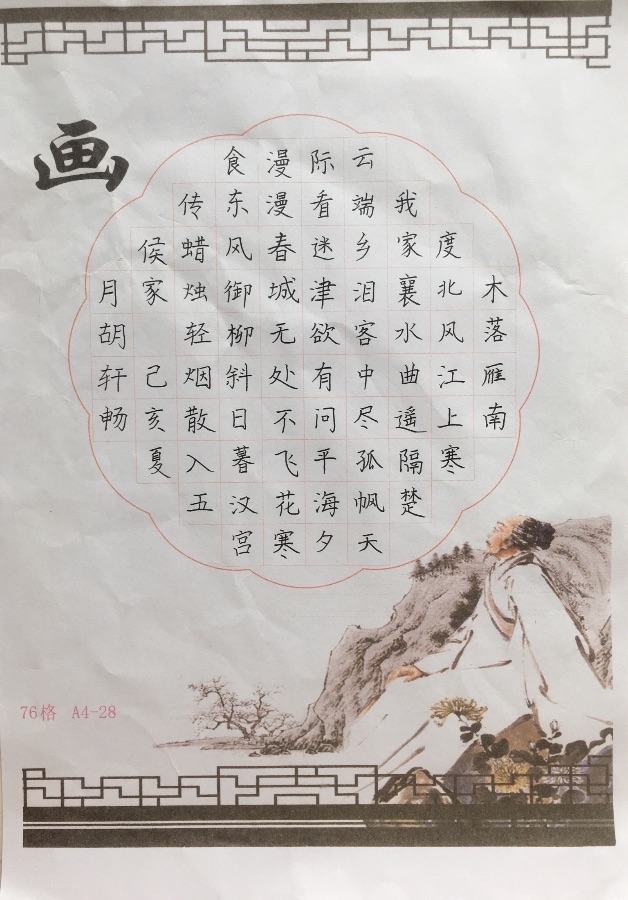 画
木落雁南
度北风江上寒
我家襄水曲遥隔楚
云端乡泪客中尽孤帆天
际看迷津欲有问平海夕
漫漫春城无处不飞花寒
食东风御柳斜日暮汉宫
传蜡烛轻烟散入五
侯家 己亥夏
月胡轩畅
76格 A4-28